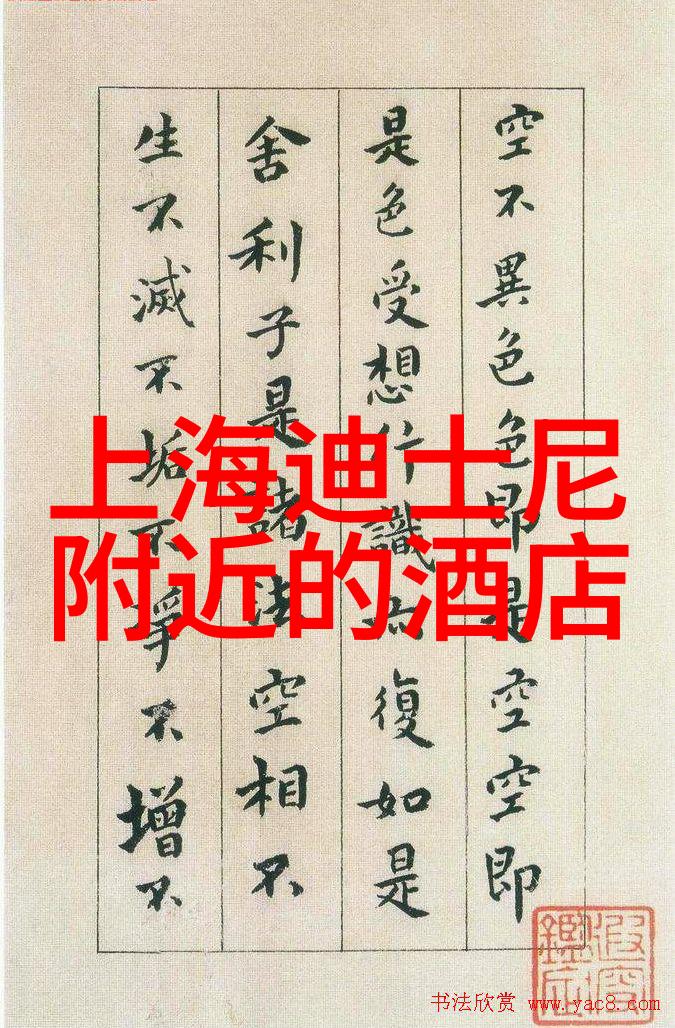 空不異色色即是空空即
是色受想行識亦復如是
舍利子是諸法空相不
生不滅不垢不淨不增不
上海迪士尼
附近的酒店
书法欣赏 www.yac8.com